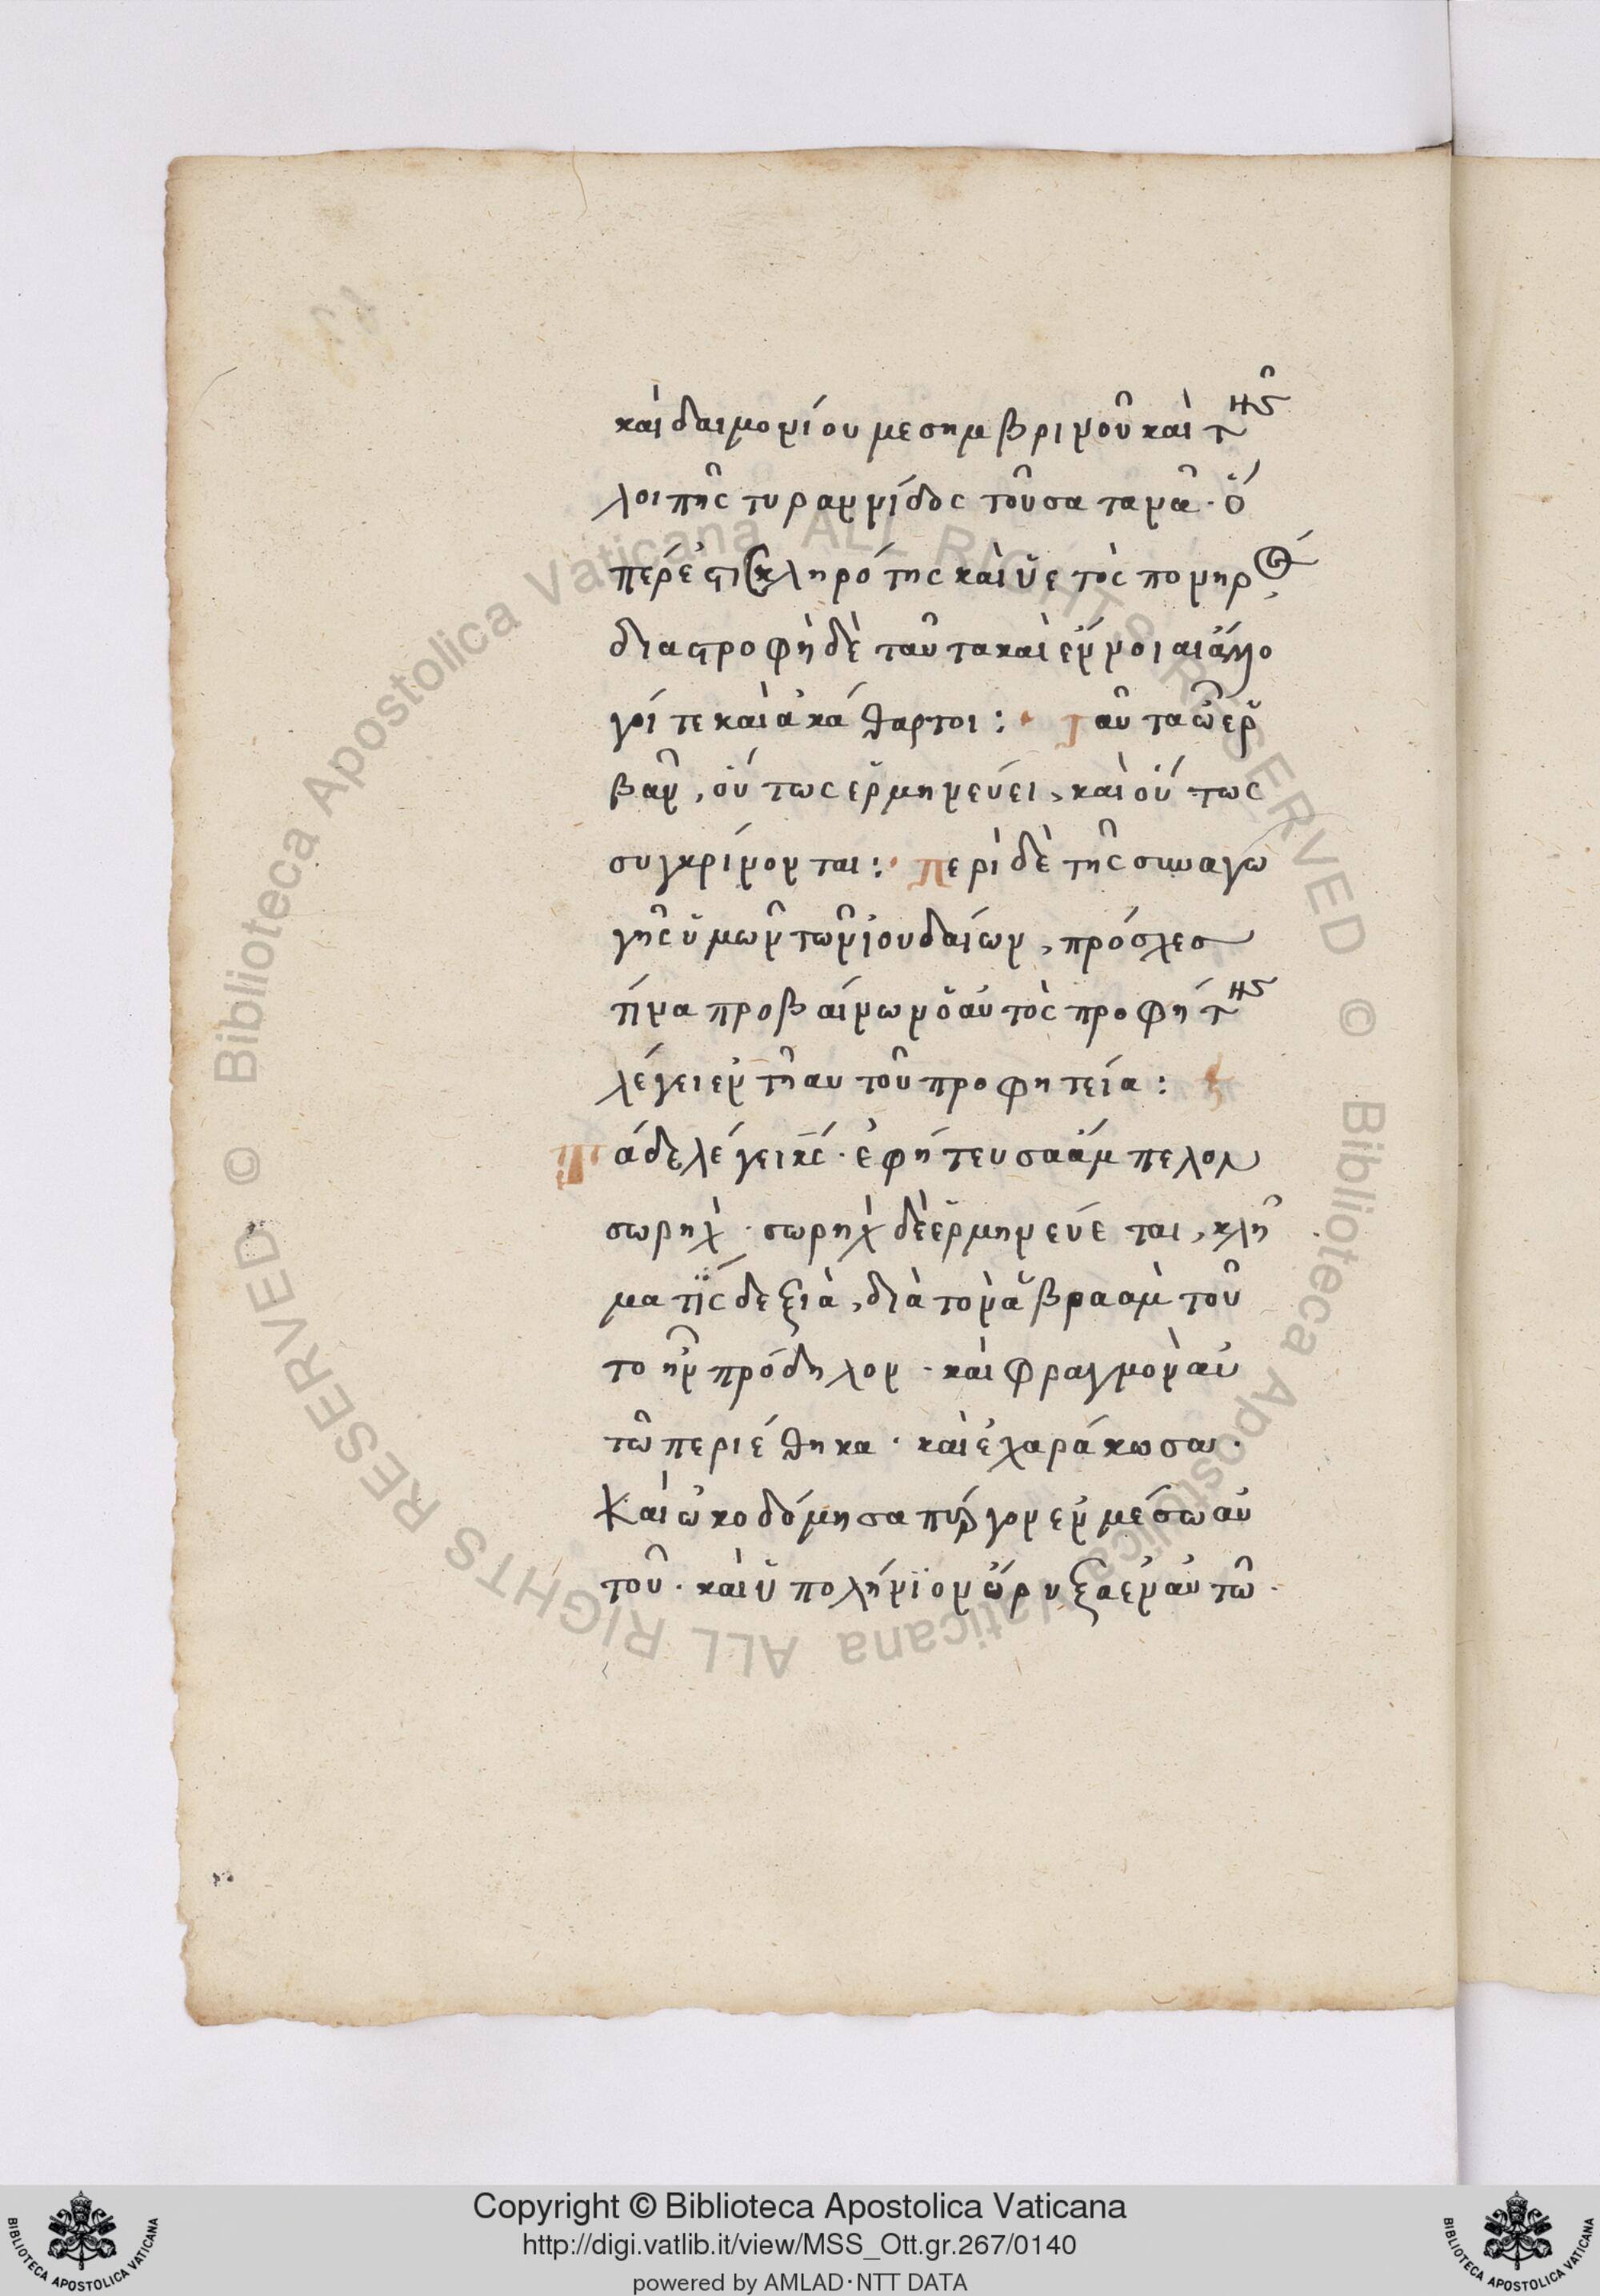 καὶ δαιμονίου μεσημβρινοῦ καὶ τῆς
λοιπῆς τυραννίδος τοῦ σατανᾶ · ὅ
πέρ ἐστι σκληρότης καὶ ὑετὸς πονηρ
διαστροφὴ δὲ ταῦτα καὶ ἔννοιαι ἄλλο
γοί τε καὶ ἀκάθαρτοι : ταῦτα ὦ ἐρ
βαν, οὕτως ἑρμηνεύει, καὶ οὕτως
συγκρίνονται : περὶ δὲ τῆς συναγω
γῆς ὑμῶν τῶν ἰουδαίων, πρόσχες
τίνα προβαίνων ὁ αὐτὸς προφήτης
λέγει ἐν τῇ αυτοῦ προφητεία :
άδε λέγει κς · ἐφύτευσα ἄμπελον
σωρὴχ · σωρὴχ δὲ ἑρμηνεύεται, κλη
ματὶς δεξιὰ, διὰ τὸν ἀβραὰμ τοῦ
το ἦν πρόδηλον · καὶ φραγμὸν αὐ
τῶ περιέθηκα · καὶ ἐχαράκωσα ·
Καὶ ὠκοδόμησα πύργον ἐν μέσω αὐ
τοῦ · καὶ ὑπολήνιον ὤρυξα ἐν αὐτῶ ·
Copyright © Biblioteca Apostolica Vaticana
http://digi.vatlib.it/view/MSS_Ott.gr.267/0140
powered by AMLAD·NTT DATA